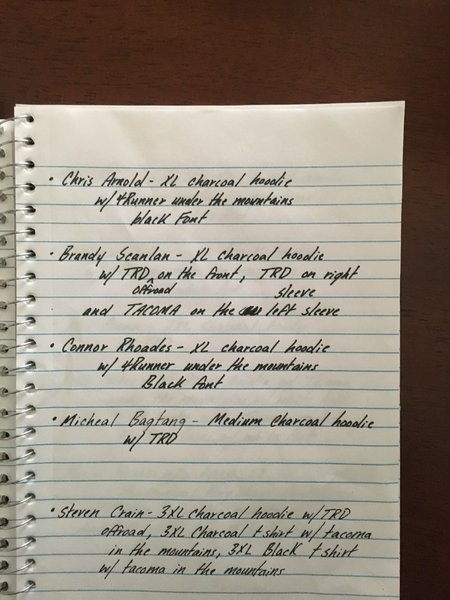 • Chris Arnold - XL charcoal hoodie
w/ 4Runner under the mountains
black Font
• Brandy Scanlan - XL charcoal hoodie
w/ TRD ^ on the front, TRD on right
offroad sleeve
and TACOMA on the left sleeve
• Connor Rhoades - XL charcoal hoodie
w/ 4Runner under the mountains
Black font
• Micheal Bagtang - Medium charcoal hoodie
w/ TRD
• Steven Crain - 3XL charcoal hoodie w/ TRD
offroad, 3XL Charcoal t shirt w/ tacoma
in the mountains, 3XL Black t shirt
w/ tacoma in the mountains